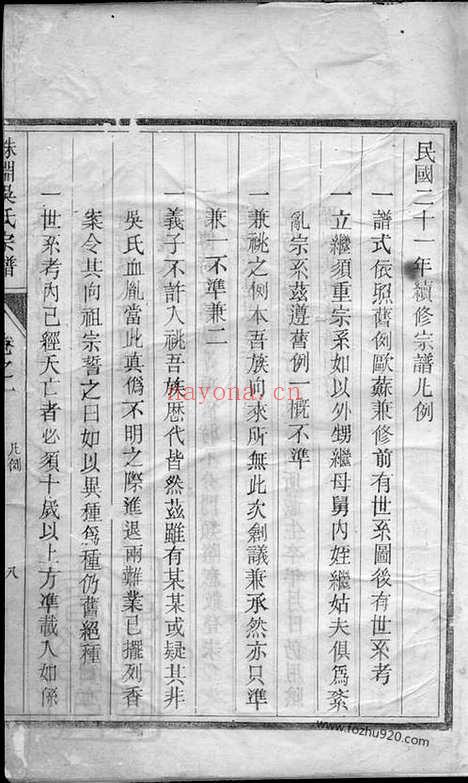 民國二十一年續修宗譜凡例
一譜式依照舊例歐蘇兼修前有世系圖後有世系考
一立繼須重宗系如以外甥繼母舅內姪繼姑夫俱爲紊
亂宗系茲遵舊例一概不準
一兼祧之例本吾族向來所無此次創議兼承然亦只準
兼一不準兼二
一義子不許入祧吾族歷代皆然茲雖有某某或疑其非
吳氏血胤當此真僞不明之際進退兩難業已擺列香
案令其向祖宗誓之曰如以異種爲種仍舊絕種
一世系考內已經夭亡者必須十歲以上方準載入如係
吳氏宗譜
卷之一
凡例
八
nayona.cn
www.fozhu920.com